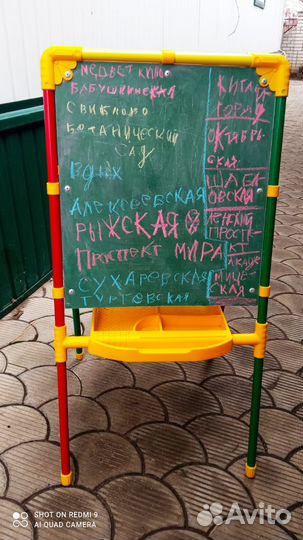 МЕДВЕТКИНО
БАБУШКИНСКАЯ
СВИБЛОВО
БОТАНИЧЕСКИЙ
САД
ВДНХ
АЛЕКСЕЕВСКАЯ
РЫЖСКАЯ
ПРОСПЕКТ МИРА
СУХАРЕВСКАЯ
ТУРГОВСКАЯ
КИТАЙ
ГОРАТ
ОКТЯБРЬ
СКАЯ
ШАБА
ОВСКАЯ
ЛЕНИНСКИЙ
ПРОСПЕ
КТ
АКАДЕ
МИЧЕ
СКАЯ
SHOT ON REDMI 9
AI QUAD CAMERA
Avito